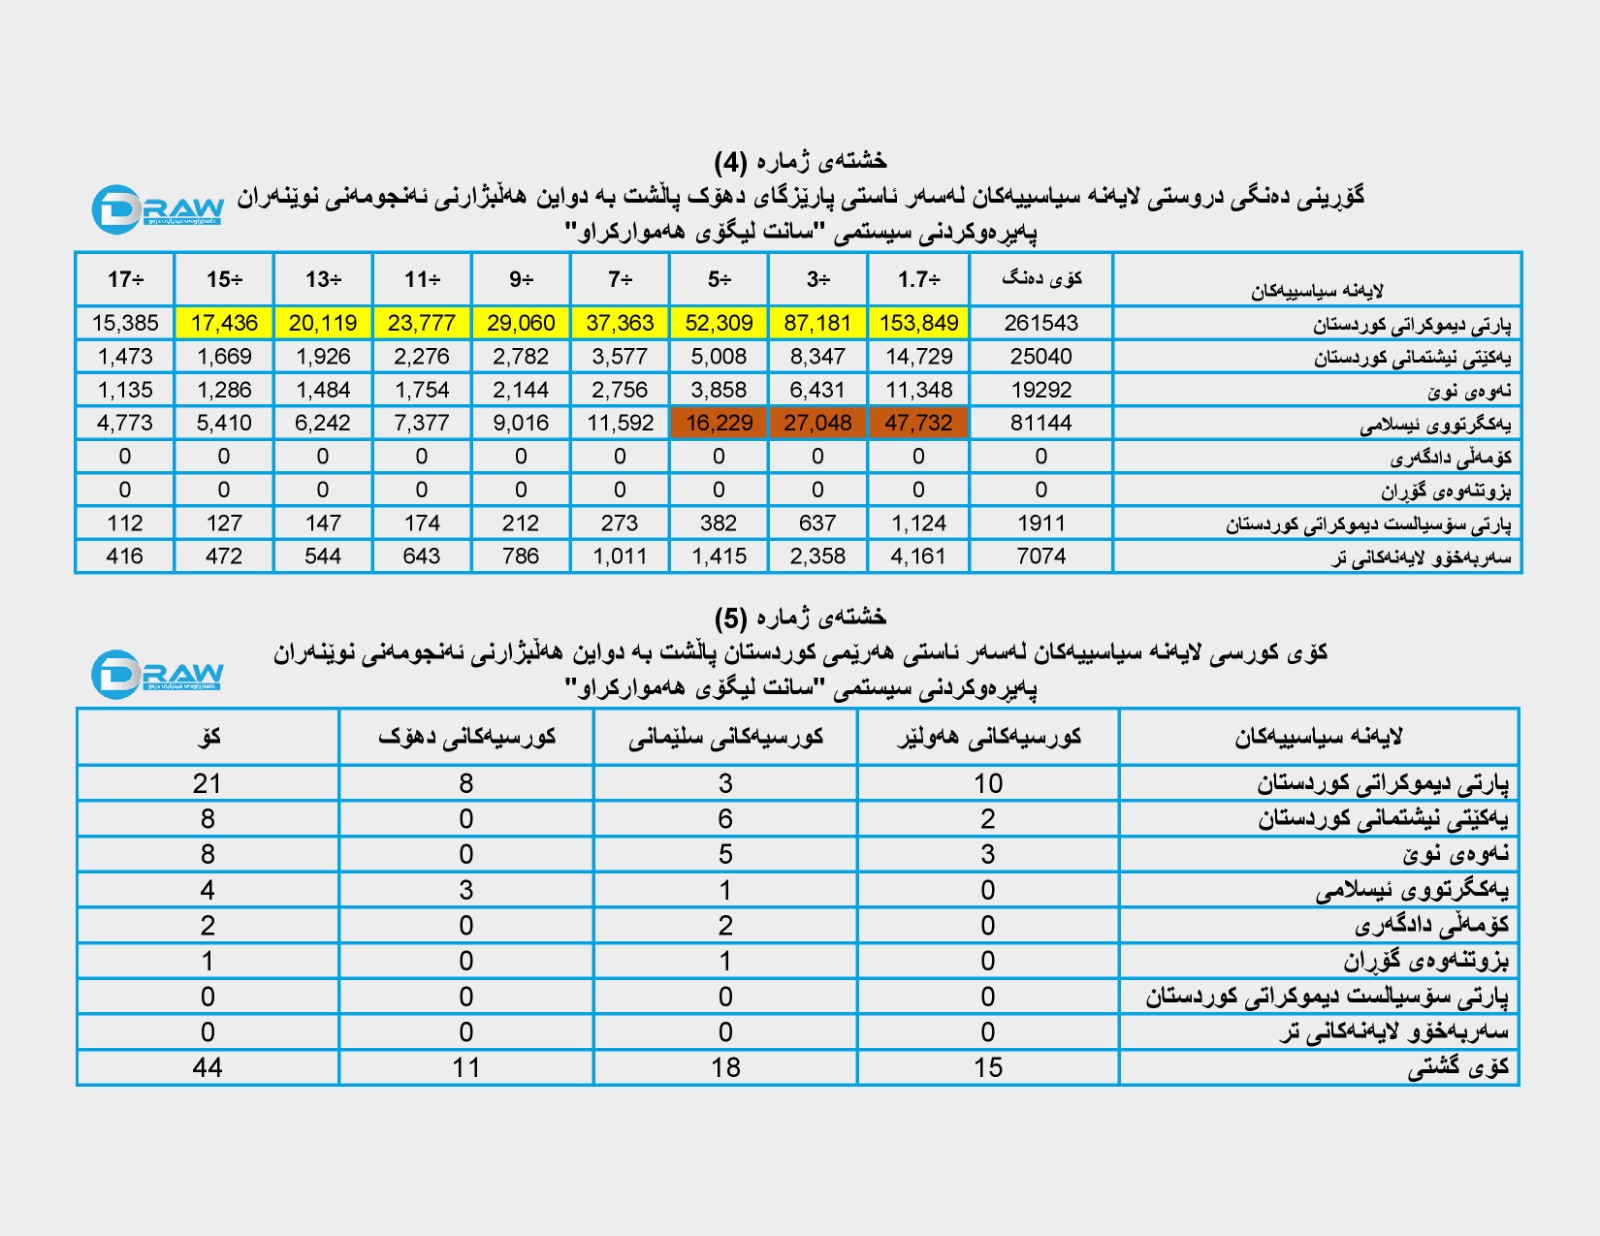 خشتەی ژمارە (4)
گۆڕینی دەنگی دروستی لایەنە سیاسییەکان لەسەر ئاستی پارێزگای دهۆک پاڵشت بە دواین هەڵبژارنی ئەنجومەنی نوێنەران
پەیڕەوکردنی سیستمی "سانت لیگۆی هەموارکراو"
DRAW
لایەنە سیاسییەکان کۆی دەنگ 1.7÷ 3÷ 5÷ 7÷ 9÷ 11÷ 13÷ 15÷ 17÷
پارتی دیموکراتی کوردستان 261543 153,849 87,181 52,309 37,363 29,060 23,777 20,119 17,436 15,385
یەکێتی نیشتمانی کوردستان 25040 14,729 8,347 5,008 3,577 2,782 2,276 1,926 1,669 1,473
نەوەی نوێ 19292 11,348 6,431 3,858 2,756 2,144 1,754 1,484 1,286 1,135
یەکگرتووی ئیسلامی 81144 47,732 27,048 16,229 11,592 9,016 7,377 6,242 5,410 4,773
کۆمەڵی دادگەری 0 0 0 0 0 0 0 0 0 0
بزوتنەوەی گۆڕان 0 0 0 0 0 0 0 0 0 0
پارتی سۆسیالست دیموکراتی کوردستان 1911 1,124 637 382 273 212 174 147 127 112
سەربەخۆو لایەنەکانی تر 7074 4,161 2,358 1,415 1,011 786 643 544 472 416
خشتەی ژمارە (5)
کۆی کورسی لایەنە سیاسییەکان لەسەر ئاستی هەرێمی کوردستان پاڵشت بە دواین هەڵبژارنی ئەنجومەنی نوێنەران
پەیڕەوکردنی سیستمی "سانت لیگۆی هەموارکراو"
DRAW
لایەنە سیاسییەکان کورسیەکانی هەولێر کورسیەکانی سلێمانی کورسیەکانی دهۆک کۆ
پارتی دیموکراتی کوردستان 10 3 8 21
یەکێتی نیشتمانی کوردستان 2 6 0 8
نەوەی نوێ 3 5 0 8
یەکگرتووی ئیسلامی 0 1 3 4
کۆمەڵی دادگەری 0 2 0 2
بزوتنەوەی گۆڕان 0 1 0 1
پارتی سۆسیالست دیموکراتی کوردستان 0 0 0 0
سەربەخۆو لایەنەکانی تر 0 0 0 0
کۆی گشتی 15 18 11 44